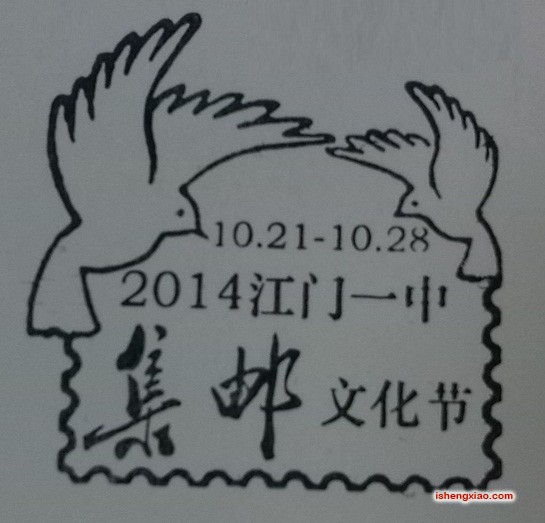 10.21-10.28
2014江门一中
集邮文化节
ishengxiao.com